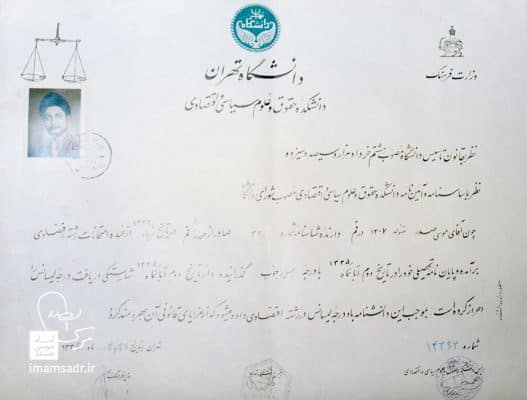 وزارت فرهنگ
دانشگاه تهران
دانشکده حقوق و علوم سیاسی و اقتصادی
نظر بقانون تاسیس دانشگاه مصوب هشتم خرداد هزار و سیصد و سیزده
نظر باساسنامه و آیین نامه دانشکده حقوق و علوم سیاسی و اقتصادی مصوب شورای دانشگاه
چون آقای موسی صدر متولد ۱۳۰۷ در قم دارنده شناسنامه شماره صادر از در تاریخ از عهده امتحانات رشته اقتصادی
برآمده و پایان نامه تحصیلی خود را در تاریخ دوم آبانماه ۱۳۳۵ با درجه خوب گذرانیده و از تاریخ دوم آبانماه ۱۳۳۵ شایستگی دریافت درجه لیسانس را
احراز کرده است. بموجب این دانشنامه باو درجه لیسانس در رشته اقتصادی داده میشود که از مزایای قانونی آن بهره مند گردد
شماره ۱۴۳۶۳
تهران بتاریخ ماه
imamsadr.ir